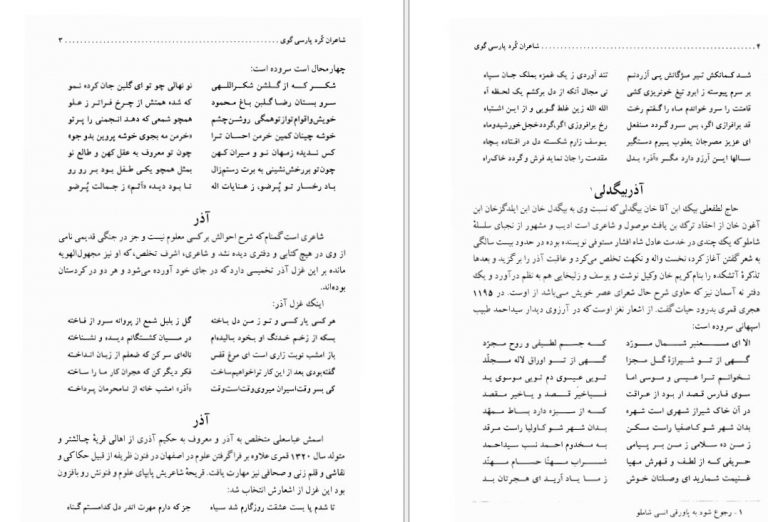 شاعران کُرد پارسی گوی ........ ۳
چهار محال است سروده است:
شکـــر کـــه از گـــلشن شکـــراللهی نو نهالی چو تو ای گلبن جان کرده نمو
سرو بستان رضا گـلبن باغ محمود که شده همتش از چـرخ فـراتر ز علو
خویش و اقوام تو از تو همگی روشن‌چشم همچو شمعی که دهد انجمنی را پرتو
خوشه چینان کمین خرمن احسان تـرا «خرمن مه بجوی خوشه پروین بدو جو»
کس ندیده ز مهان نـو و میران کـهن چون تو معروف به عقل کهن و طالع نو
چون تو بر رخش نشینی به برت رستم زال بمثل همچو یکی طفـل بود بر رو رو
باد رخسار تو پُرضو، ز عنایات اله تـا بـود دیـده «آثـم» ز جمالت پُرضو
آذر
شاعری است گمنام که شرح احوالش بر کسی معلوم نیست و جز در جنگی قدیمی نامی
از وی در هیچ کتابی و دفتری دیده نشد و شاعری، اشرف تخلص، که او نیز مجهول‌الهویه
مانده بر این غزل آذر تخمیسی دارد که در جای خود آورده می‌شود و هر دو در کردستان
بوده‌اند.
اینک غزل آذر:
هر کسی یار کسی و تو ز من دل باخته گل ز بلبل شمع از پروانه سرو از فاخته
بسکه از زخم خدنگ او بخود بالیده‌ام در مــیان کشتگانم دیـده و نشـناخته
باز امشب نوبت زاری است ای مرغ قفس ناله‌ای سر کن که ضعفم از زبان انداخته
گفته بودی بعد از این کار ترا خواهیم ساخت فکر دیگر کن که هجران کار ما را ساخته
کی بسر وقت اسیران میروی وقت است وقت «آذر» امشب خانه از نامحرمان پرداخته
آذر
اسمش عباسعلی متخلص به آذر و معروف به حکیم آذری از اهالی قریهٔ چالشتر و
متولد سال ۱۳۲۰ قمری علاوه بر فراگرفتن علوم در اصفهان در فنون ظریفه از قبیل حکاکی و
نقاشی و قلم زنی و صحافی نیز مهارت یافت. قریحهٔ شاعریش پابپای علوم و فنونش رو بافزون
بود این غزل از اشعارش انتخاب شد:
تا شدم پا بست عشقت روزگارم شد سیاه جز که دارم مهرت اندر دل کدامستم گناه
۴ ........ شاعران کُرد پارسی گوی
شـد کمانکش تیر مژگانش پی آزردنم تند آوردی ز یک غمزه بملک جان سپاه
بر سرم پیوسته ز ابرو تیغ خونریزی کشی نی مجال آنکه از دل برکشم یک لحظه آه
قامتت را سرو خواندم ماه را گفتم رخت الله الله زین غلط گویی و از این اشتباه
قد برافرازی اگر، بس سرو گردد منفعل رخ برافروزی اگر، گردد خجل خورشید و ماه
ای عزیز مصر جان یعقوب پیرم دستگیر یوسف زارم شکسته دل در افتاده بچاه
سالها این آرزو دارد مگر «آذر» بدل مقدمت را جان نماید فرش و گردد خاک راه
آذر بیگدلی۱
حاج لطفعلی بیک ابن آقا خان بیگدلی که نسبت وی به بیگدل خان ابن ایلدگز خان ابن
آغون خان از احفاد ترک بن یافث موصول و شاعری است ادیب و مشهور از نجبای سلسلهٔ
شاملو که یک چندی در خدمت عادل شاه افشار مستوفی نویسنده بوده در حدود بیست سالگی
به شعر گفتن آغاز کرد، نخست واله و نکهت تخلص می‌کرد و عاقبت آذر را برگزید و بعدها
تذکرهٔ آتشکده را بنام کریم خان وکیل نوشت و یوسف و زلیخایی هم به نظم درآورد و یک
دفتر نه آسمان نیز که حاوی شرح حال شعرای عصر خویش می‌باشد از اوست. در ۱۱۹۵
هجری قمری بدرود حیات گفت. از اشعار نغز اوست که در آرزوی دیدار سیداحمد طبیب
اسپهانی سروده است:
الا ای مـــعنبر شـــمال مـــورّد کـــه جـــم لطـیفی و روح مجرّد
گـــهی از تـــو شیرازهٔ گـل مجزا گـــهی از تـــو اوراق لالـه مـجلّد
نـخوانـم تـرا عیـسی و موسی اما تـویی عیـسوی دم تویی موسوی ید
سوی فارس قصد ار بود از عراقت فـیا خیر قـصد و یا خیر مـقصد
در آن خاک شیراز شهری است شهره کـه از سبزه دارد بساط ممهّد
بدان شهر شو کاصفیا راست مسکن بـدان شـهر شـو کاولیا راست مرقد
ز من ده سلامی ز من بر پیامی بـه مخدوم احمد نسب سیداحمد
حریفی که از لطف و قهرش مهیا شــراب مـــهنّا حســام مــهنّد
غنیمت شمارید ای وصلتان خوش ز مـا یـاد آریـد ای هـجرتان بـد
۱ - رجوع شود به پاورقی انسی شاملو